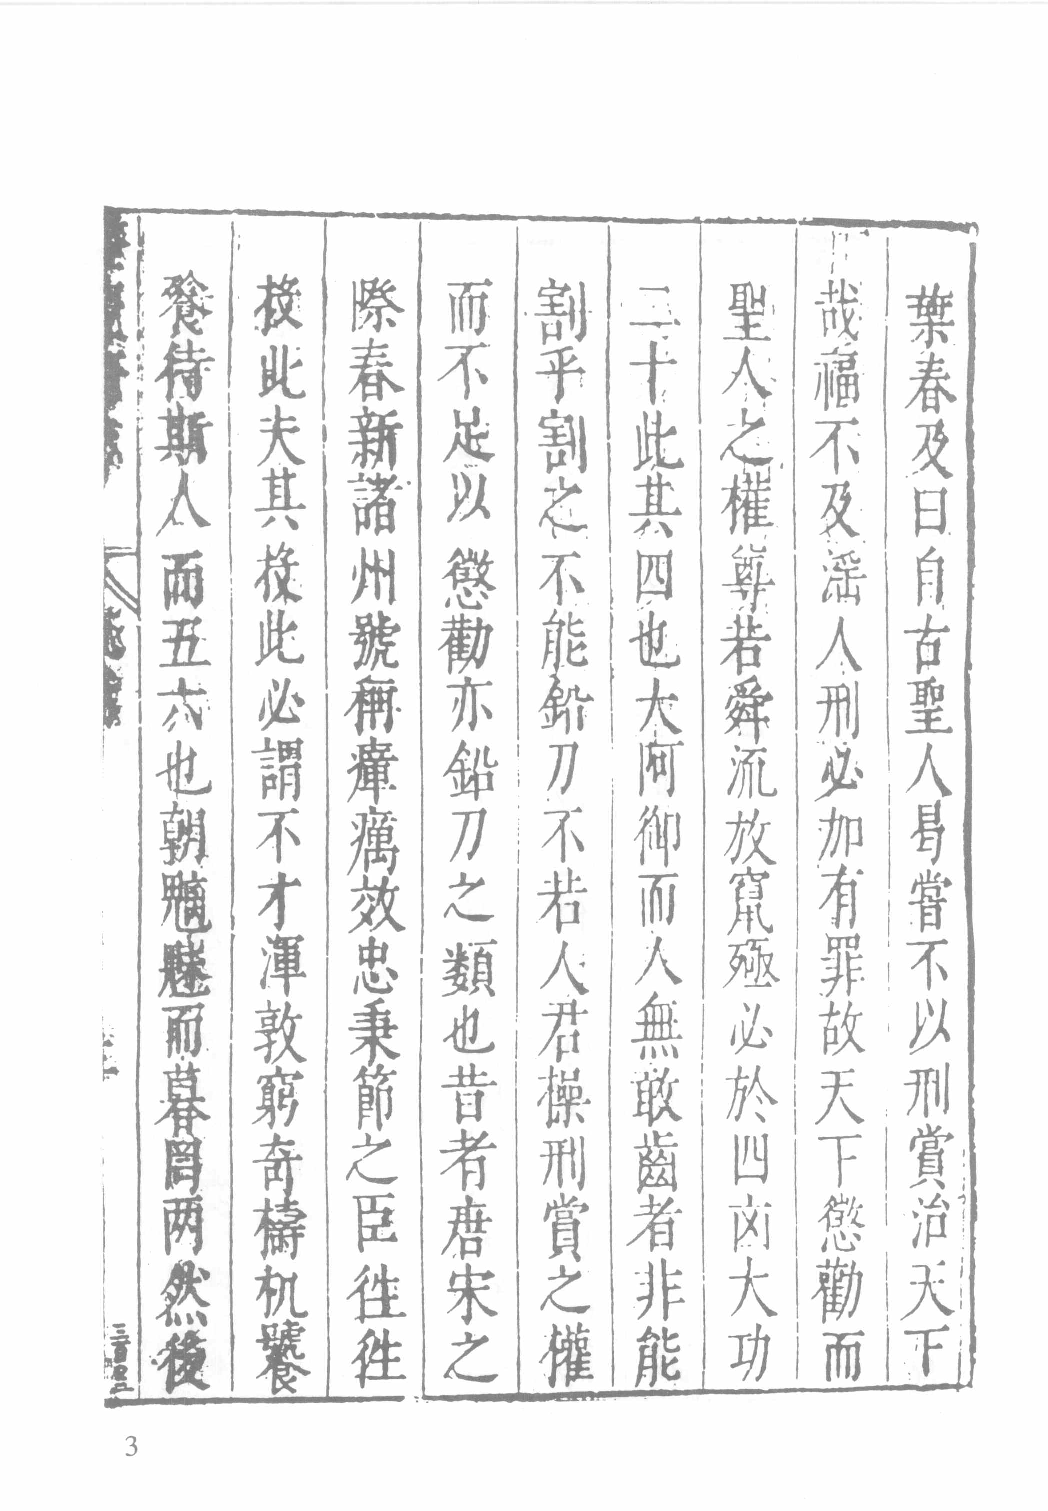 葉春及曰自古聖人曷嘗不以刑賞治天下
哉福不及滛人刑必加有罪故天下懲勸而
聖人之權尊若舜流放竄殛必於四凶大功
二十此其四也大阿御而人無敢齒者非能
割乎割之不能鉛刀不若人君操刑賞之權
而不足以懲勸亦鉛刀之類也昔者唐宋之
際春新諸州號稱瘴癘效忠秉節之臣徃徃
投此夫其投此必謂不才渾敦窮奇檮杌饕
飻待斯人而五六也朝魑魅而暮罔两然後
3